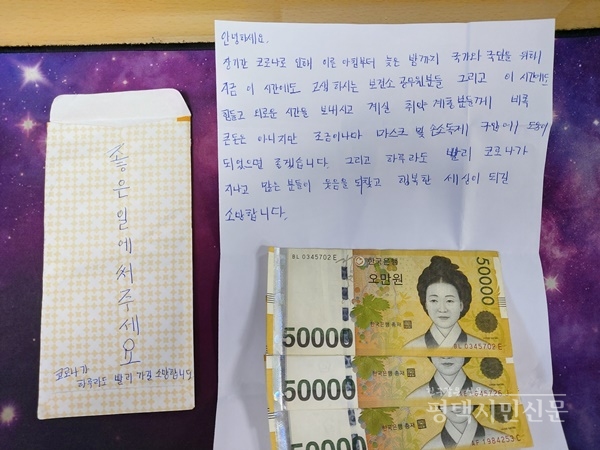 좋은일에써주세요
코로나가
하루라도 빨리 가길 소망합니다
안녕하세요.
장기간 코로나로 인해 이른 아침부터 늦은 밤까지 국가와 국민을 위해
지금 이 시간에도 고생 하시는 보건소 공무원분들 그리고 이 시간에도
힘들고 외로운 시간을 보내시고 계실 취약 계층분들께 비록
큰돈은 아니지만 조금이나마 마스크 및 손소독제 구입에 도움이
되었으면 좋겠습니다. 그리고 하루라도 빨리 코로나가
지나고 많은 분들이 웃음을 되찾고 행복한 세상이 되길
소망합니다.
BL 0345702 E
한국은행
오만원
50000
한국은행 총재
50000
BL 0345702 E
50000
한국은행 총재
50000
한국은행 총재
1984253 C
평택시민신문